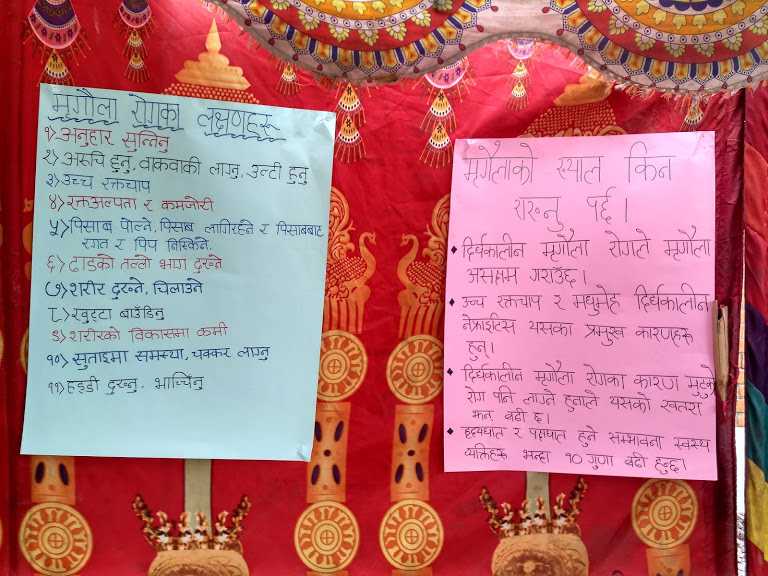 मृगौला रोगका लक्षणहरू
१> अनुहार सुन्निनु
२> अरूचि हुनु, वाकवाकी लाग्नु, उल्टी हुनु
३> उच्च रक्तचाप
४> रक्तअल्पता र कमजोरी
५> पिसाब पोल्ने, पिसाब लागिरहने र पिसाबबाट
रगत र पिप निस्किने
६> ढाडको तल्लो भाग दुख्ने
७> शरीर दुख्ने, चिलाउने
८> खुट्टा बाउँडिनु
९> शरीरको विकासमा कमी
१०> सुताइमा समस्या, चक्कर लाग्नु
११> हड्डी दुख्नु, भाच्चिनु
मृगौलाको ख्याल किन
गर्नु पर्द ।
दिर्घकालीन मृगौला रोगले मृगौला
असक्षम गराउँछ ।
उच्च रक्तचाप र मधुमेह दिर्घकालीन
नेफ्राइटिस यसका प्रमुख कारणहरू
हुन् ।
दिर्घकालीन मृगौला रोगका कारण मुटुको
रोग पनि लाग्ने हुनाले यसको खतरा
झन बढी छ ।
हृदयघात र पक्षघात हुने सम्भावना स्वस्थ
व्यक्तिहरू भन्दा १० गुणा बढी हुन्छ ।